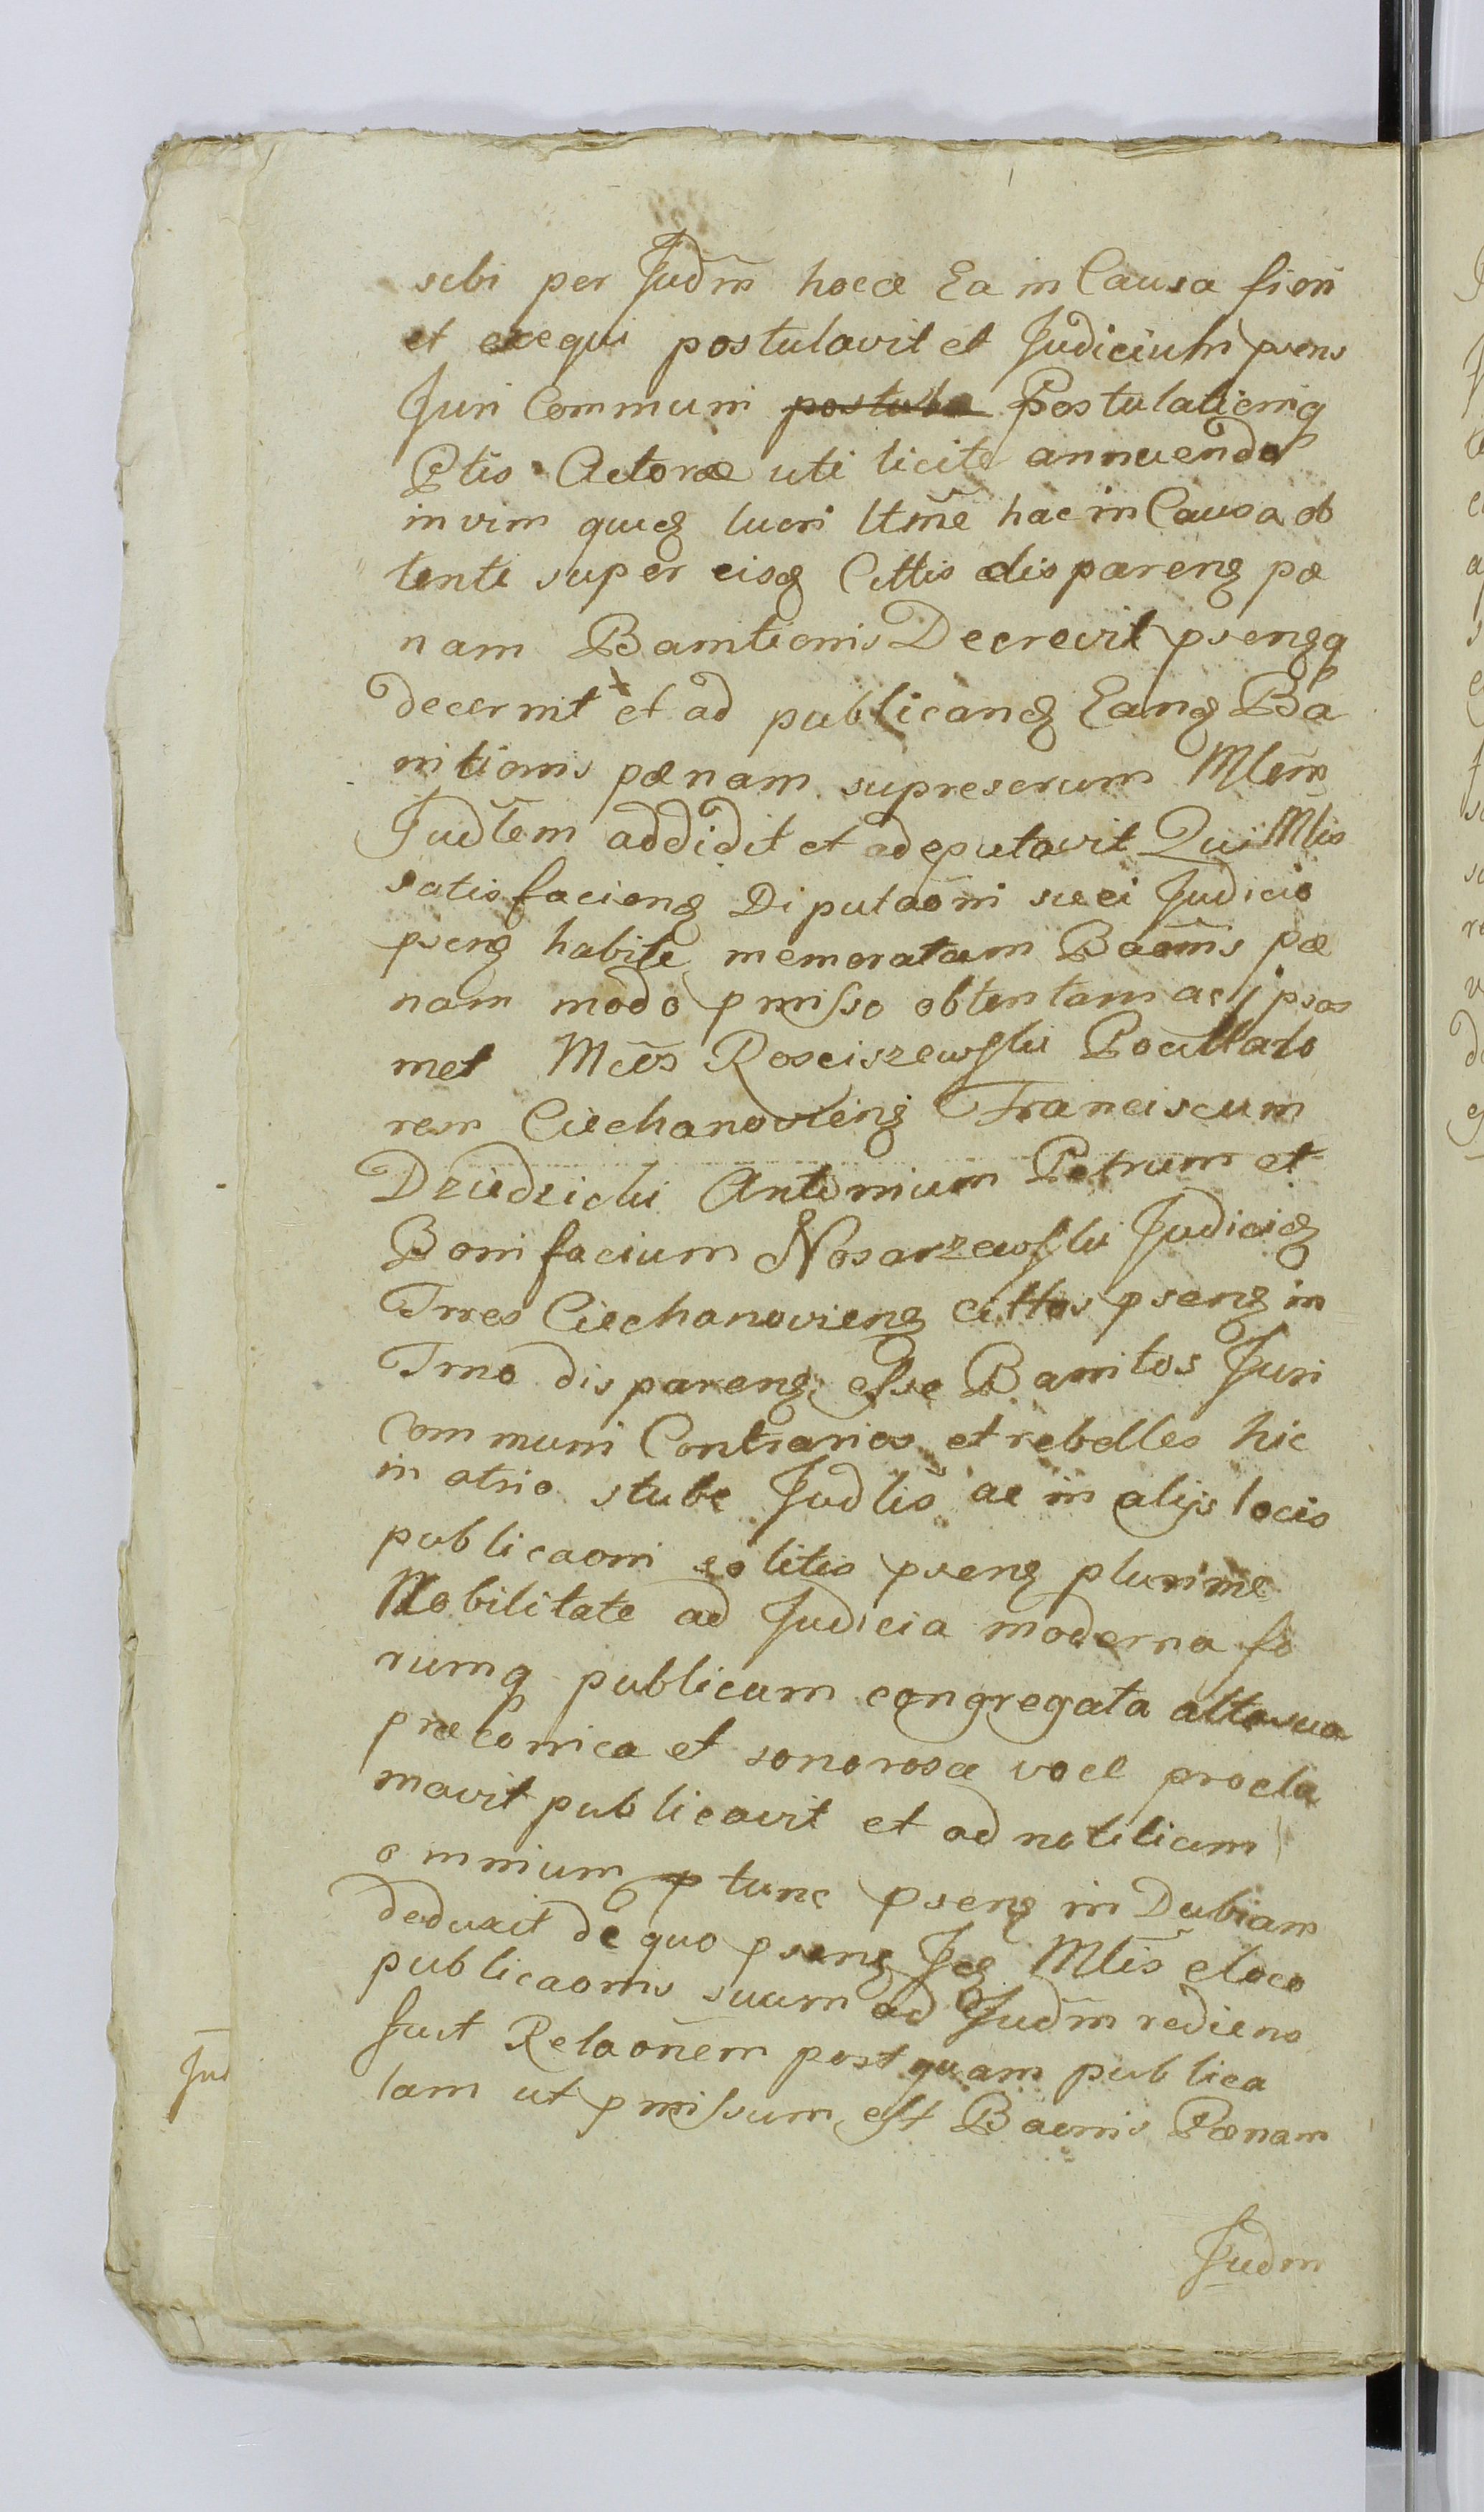 sibi per Judm̃ hocce Ea in Causa fieri
et exequi postulavit et Judicium psens
Juri Communi postula Postulationiq
Ptis Actoreæ uti licite annuendo
in vim quoq lucri ltm̃e hac in Causa ob
tenti super eisq Cittis disparenq pæ
nam Banitionis Decrevit psenqq
decernit et ad publicanq Eanq Ba
nitionis pænam supreserum Mlem
Judlem addidit et adeputavit Qui Mlis
satisfacienq Diputaõni suei Judicio
psenq habite memoratam Baõnis pæ
nam modo pmisso obtentam ac ipsos
met Mcos Rosciszewski Pocillato
rem Ciechanovienq Franciscum
Dziedzicki Antonium Petrum et
Bonifacium Nosarzewski Judiciq
Trres Ciechanovienq cittos psenq in
Trno disparenq esse Banitos Juri
communi Contrarios et rebelles hic
in atrio stube Judlis ac in alijs locis
publicaoni solitis psenq plurime
Nobilitate ad Judicia moderna fo
rumq publicum congregata alta sua
præconica et sonorosa voce procla
mavit publicavit et ad notitiam
omnium p tunc psenq in Dubiam
deduxit de quo psenq Jq Mlis eloco
publicaonis suum ad Judm̃ rediens
fecit Relaoñem postquam publica
tam ut pmissum est Baonis Pænam
Judm
Jud